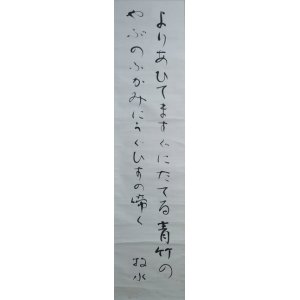 よりあひてますぐにたてる青竹の
やぶのふかみにうぐひすの啼く
牧水